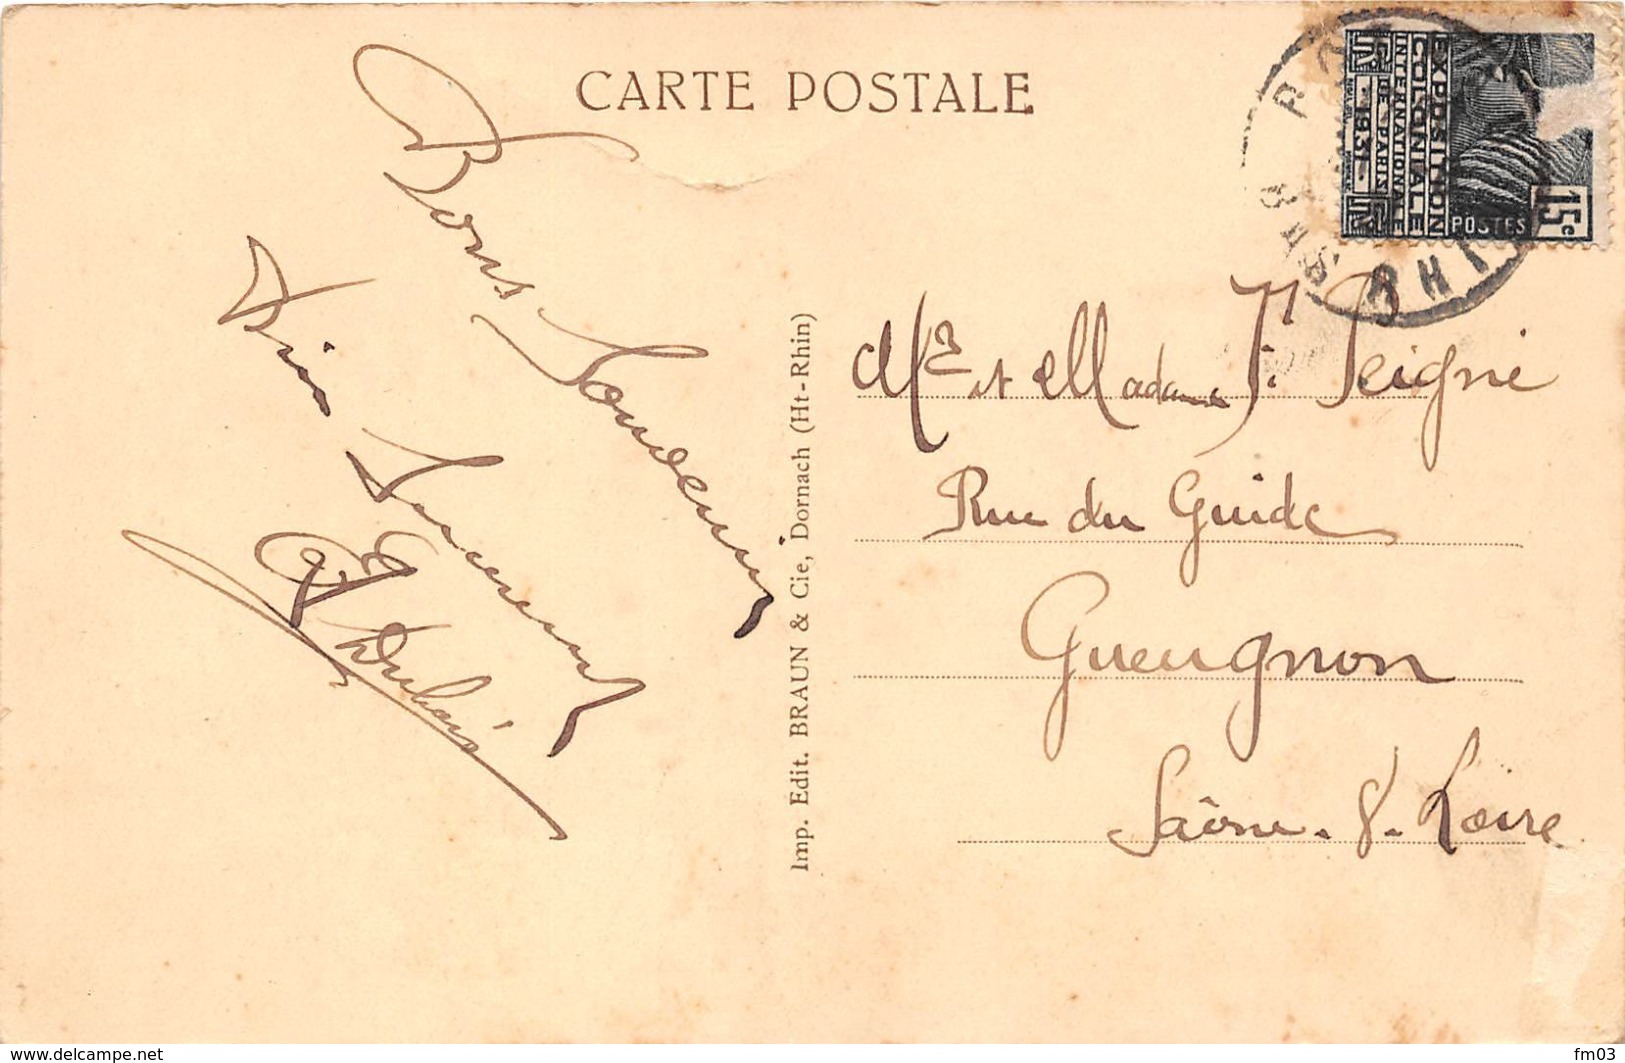 CARTE POSTALE
EXPOSITION
COLONIALE
INTERNATIONALE
DE PARIS
RF - 1931 - RF
POSTES
15c
BAS RHIN
Bons Souvenirs
Imp. Edit. BRAUN & Cie, Dornach (Ht-Rhin)
Mr et Madame F. Peigne
Rue du Guide
Gueugnon
Saône-&-Loire
www.delcampe.net
fm03